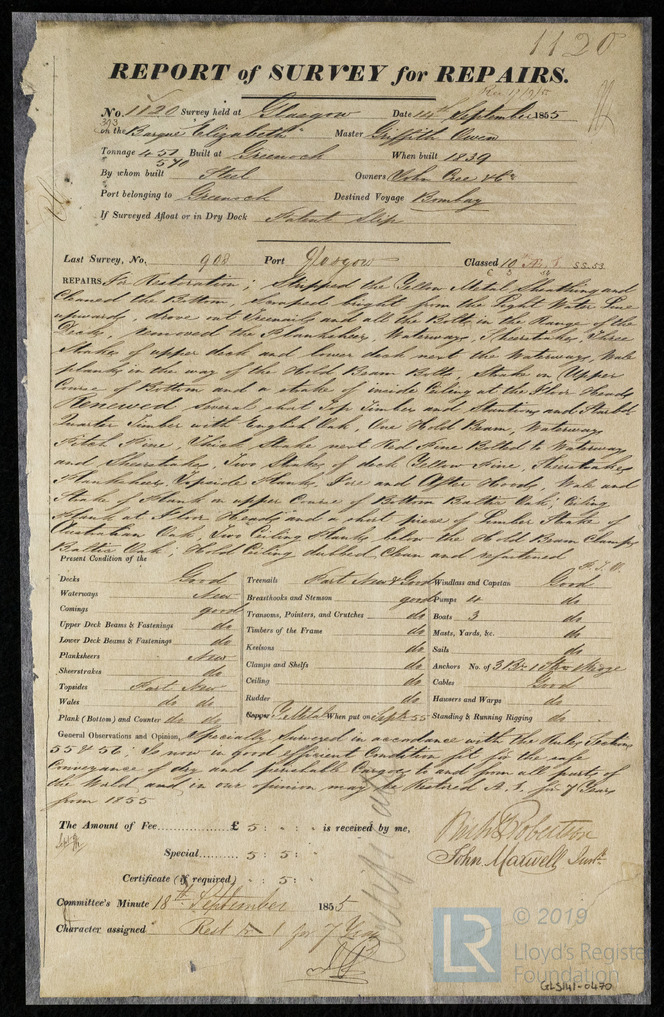 1120
REPORT of SURVEY for REPAIRS.
No. 1120 Survey held at Glasgow Date 14th September 1855
on the Barque Elizabeth Master Griffith Owen
Tonnage 451 Built at Greenock When built 1839
570
By whom built Steel Owners John Cree & Co
Port belonging to Greenock Destined Voyage Bombay
If Surveyed Afloat or in Dry Dock Patent Slip
Last Survey, No. 908 Port Glasgow Classed 10 A.1. SS.53
REPAIRS. For Restoration; Stripped the Yellow Metal Sheathing and
Cleaned the Bottom, Scraped bright from the Light Water Line
upwards, drove out Treenails and all the Bolts in the Range of the
Decks, removed the Plankshears, Waterways, Sheerstrakes, Three
Strakes of upper deck and lower deck next the Waterways, Wale
planks in the way of the Hold Beam Bolts, Strake on Upper
Course of Bottom and a strake of inside Ceiling at the Floor Heads
Renewed Several short Top Timbers and Stantions and Starbd
Quarter Timber with English Oak, One Hold Beam, Waterways
Pitch Pine, Thick Strake next Red Pine Bolted to Waterways
and Sheerstrakes, Two Strakes of deck Yellow Pine, Sheerstrakes
Plankshears, Topside Planks, Fore and After Hoods, Wale and
Strake of Plank on upper Course of Bottom Baltic Oak; Ceiling
Plank at Floor Heads and a short piece of Limber Strake of
Australian Oak, Two Ceiling Planks below the Hold Beam Clamps
Baltic Oak; Hold Ceiling dubbed Clean and refastened
P.T.O.
Present Condition of the
Decks Good Treenails Part New & Good Windlass and Capstan Good
Waterways New Breasthooks and Stemson good Pumps 4 do
Comings good Transoms, Pointers, and Crutches do Boats 3 do
Upper Deck Beams & Fastenings do Timbers of the Frame do Masts, Yards, &c. do
Lower Deck Beams & Fastenings do Keelsons do Sails do
Planksheers New Clamps and Shelfs do Anchors No. of 3 Br 1 Stream & Kedge
Sheerstrakes do Ceiling do Cables Good
Topsides Part New Rudder do Hawsers and Warps do
Wales do do Copper Y. Metal When put on Sept. 55 Standing & Running Rigging do
Plank (Bottom) and Counter do do
General Observations and Opinion, Specially Surveyed in accordance with the Rules, Sections
55 & 56; Is now in good efficient Condition fit for the safe
Conveyance of dry and perishable Cargoes to and from all parts of
the World and in our opinion may be Restored A.1. for 7 Years
from 1855
The Amount of Fee £ 5 : : is received by me,
Special 5 : 5 :
Certificate (if required) : 5 :
John Maxwell Surv.
Committee's Minute 18th September 1855
Character assigned Rest A 1 for 7 Years
LR
© 2019
Lloyd's Register
Foundation
GLS141-0470